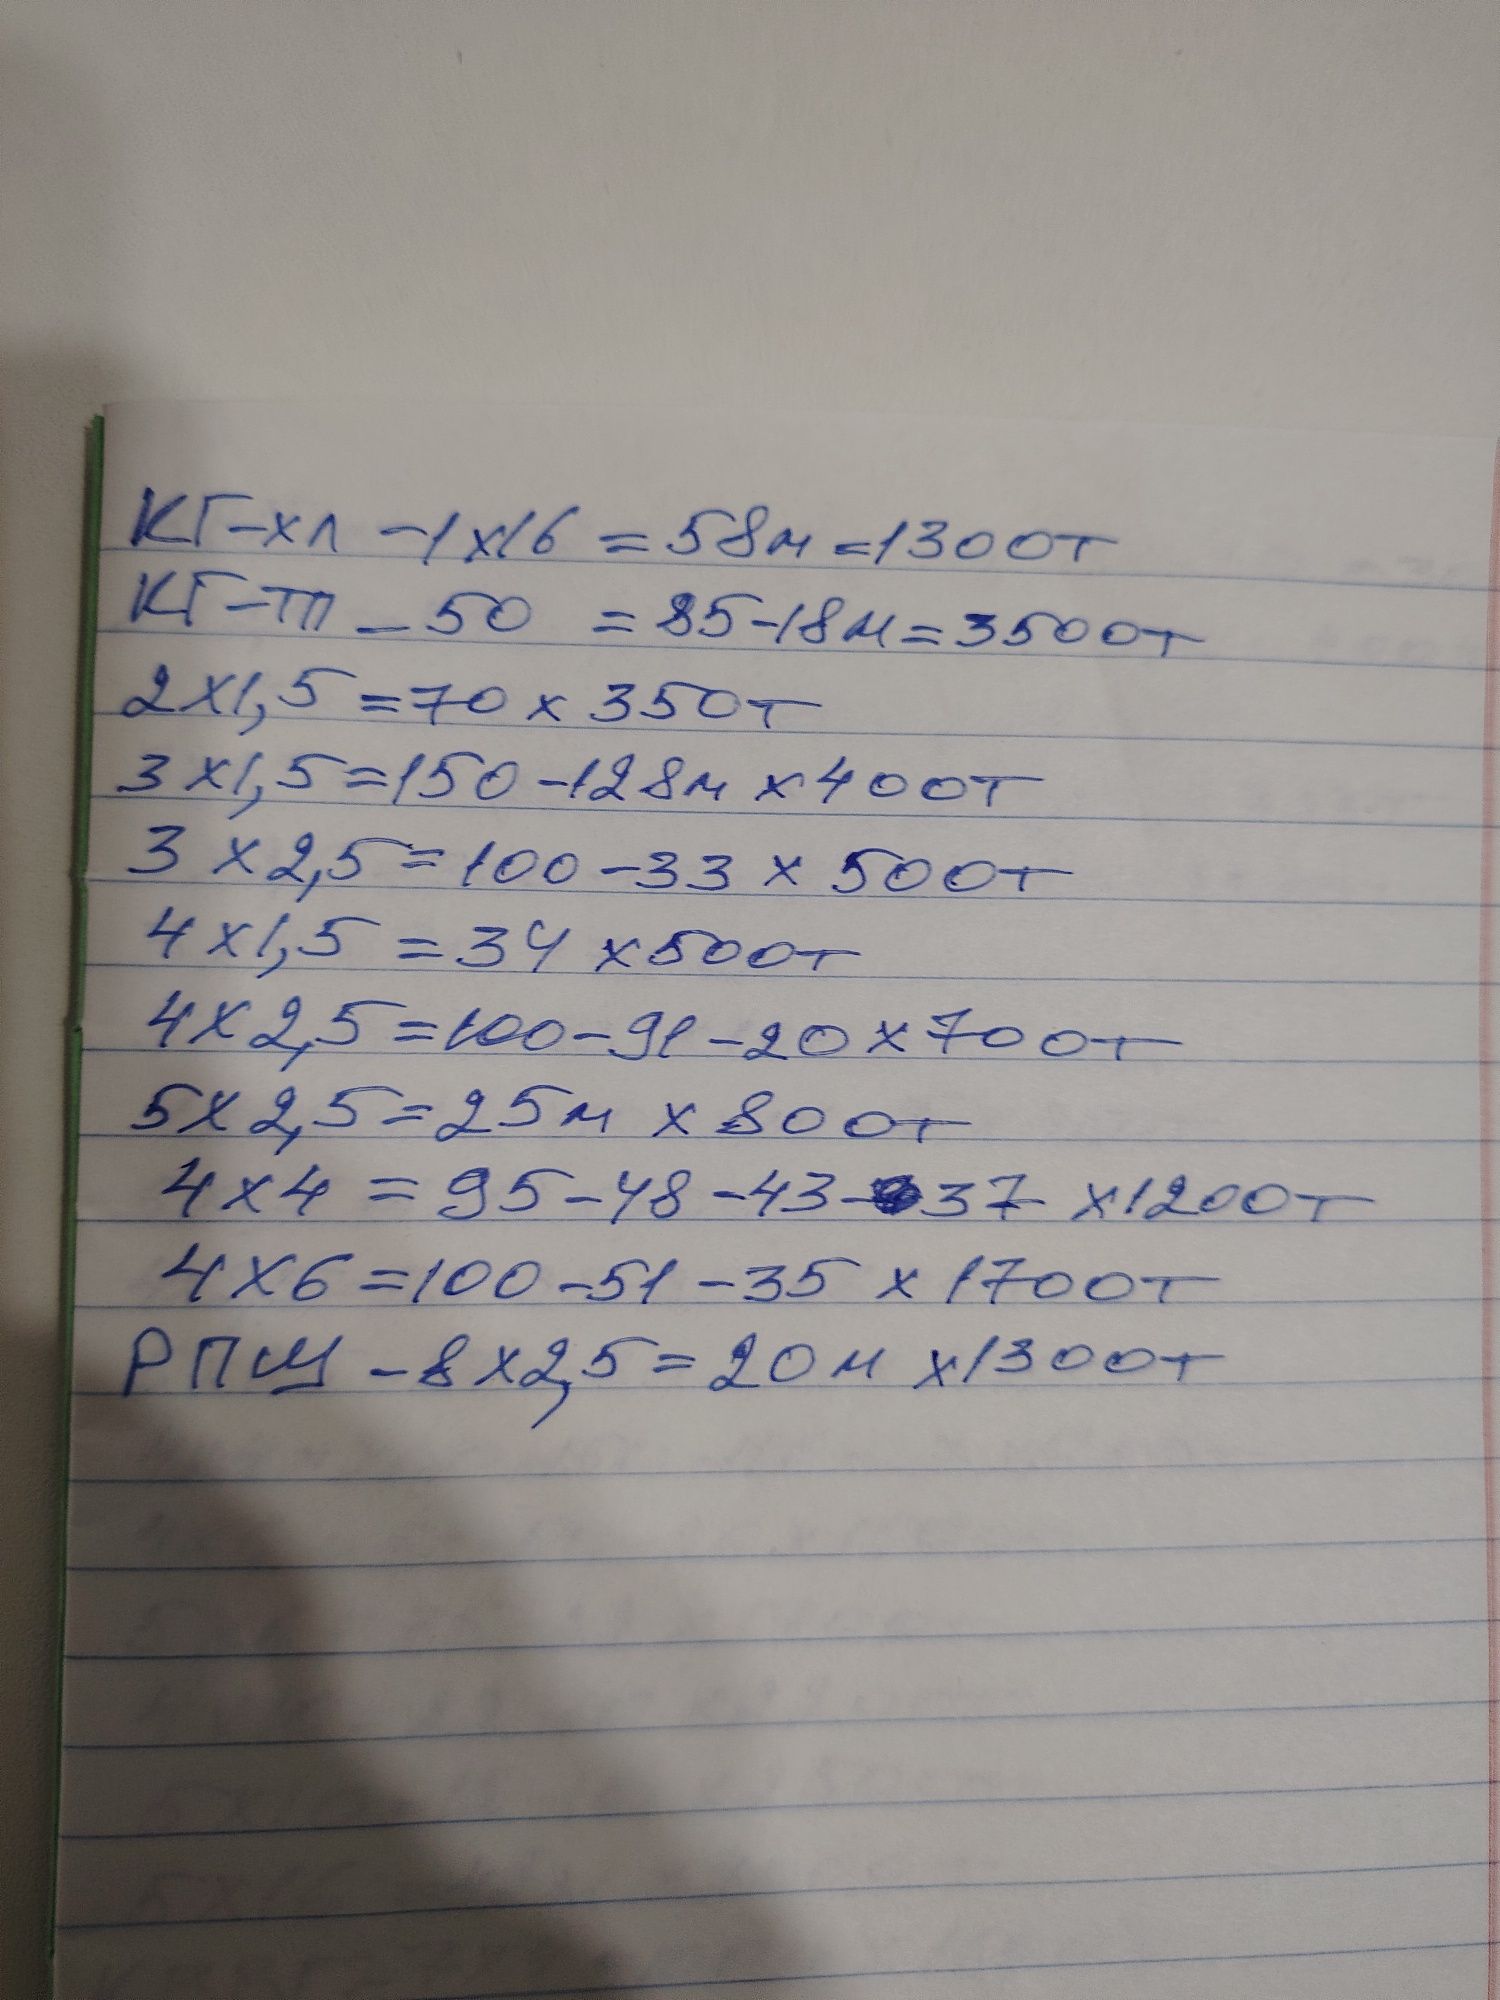 КГ-хл -1х16 = 58м = 1300т
КГ-тп - 50 = 85-18м = 3500т
2х1,5 = 70 х 350т
3х1,5 = 150 -128м х 400т
3 х 2,5 = 100 -33 х 500т
4х1,5 = 34 х 500т
4х2,5 = 100-91-20 х 700т
5х2,5 = 25м х 800т
4х4 = 95-48-43-37 х1200т
4х6 = 100-51-35 х 1700т
РПШ -8х2,5 = 20м х1300т